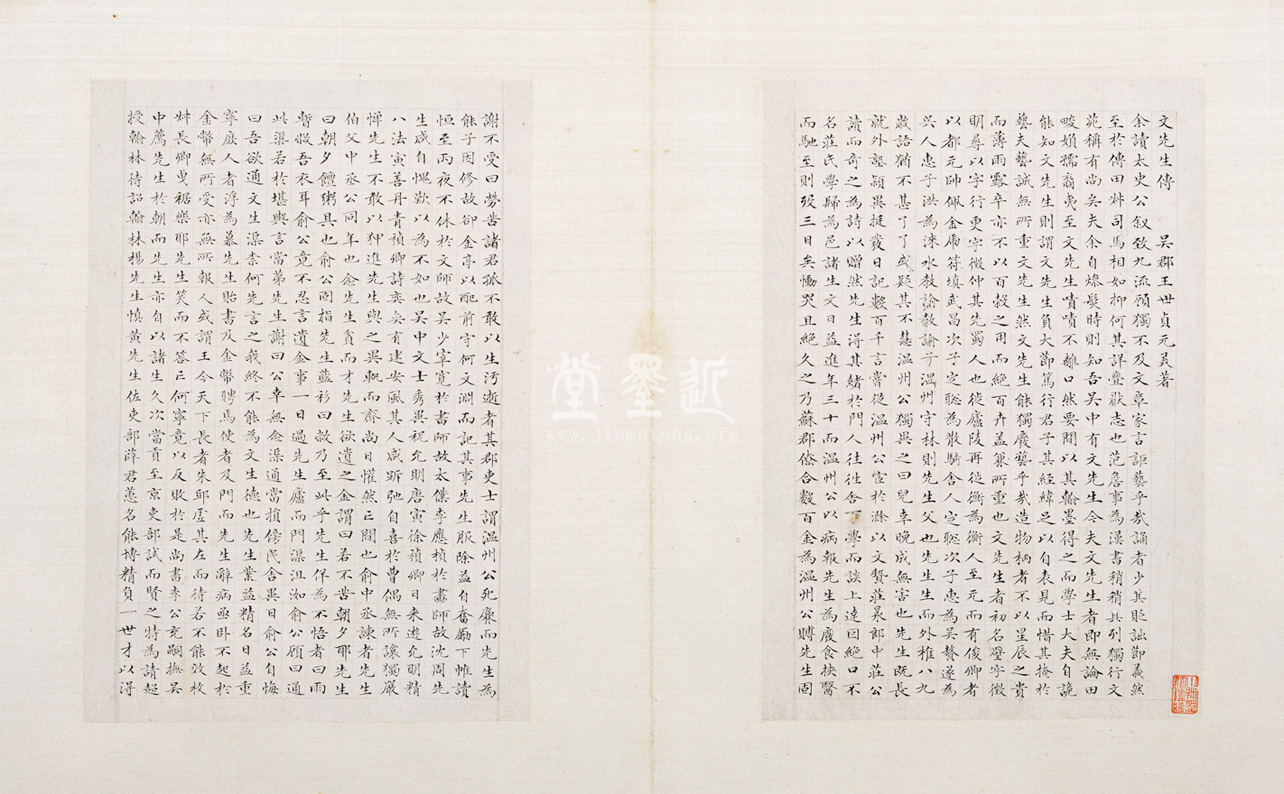 文先生傳　吳郡王世貞元美著
余讀太史公叙致九流頋獨不及文章家言詎藝乎哉誦者少其貶詘節義然
至於傳田叔司馬相如抑何其詳亹猒志也范詹事為漢書稍稍具列獨行文
苑稱有尚矣夫余自燥髮時則知吾吳中有文先生今夫文先生者即無論田
畯嬪孺裔夷至文先生嘖嘖不離口然要間以其翰墨得之而學士大夫自詭
能知文先生則謂文先生負大節篤行君子其經緯足以自表見而惜其掩於
藝夫藝誠無所重文先生然文先生能獨廢藝乎哉造物柄者不以星辰之貴
而薄雨露卒亦不以百穀之用而絕百卉盖兼所重也文先生者初名璧字徵
明尋以字行更字徵仲其先蜀人也徙廬陵再徙衡為衡人至元而有俊卿者
以都元帥佩金虎符填武昌次子定聡為散騎舍人定聡次子惠為吳贅遂為
吳人惠子洪為淶水教諭教諭子温州守林則先生父也先生生而外椎八九
歲語猶不甚了了或疑其不慧温州公獨異之曰兒幸晚成無害也先生既長
就外塾頴異挺發日記數百千言嘗從温州公宦於滁以文贄莊㫤郎中莊公
讀而奇之為詩以贈然先生得其緒於門人往往舍下學而談上達因絕口不
名莊氏學歸為邑諸生文日益進年三十而温州公以病報先生為廢食挾醫
而馳至則歿三日矣慟哭且絕久之乃蘇郡僚合數百金為温州公賻先生固
謝不受曰勞苦諸君孤不敢以生汚逝者其郡吏士謂温州公死廉而先生為
能子因修故卻金亭以配前守何文淵而記其事先生服除益自奮勵下帷讀
恒至丙夜不休於文師故吳少宰寬於書師故太僕李應禎於畫師故沈周先
生咸自愧歎以為不如也吳中文士秀異祝允明唐寅徐禎卿日来遊允明精
八法寅善丹青禎卿詩奕奕有建安風其人咸跅弛自喜於曹偶無所讓獨嚴
憚先生不敢以狎進先生與之異軌而齊尚日懽然亡間也俞中丞諫者先生
伯父中丞公同年也念先生貧而才先生欲遺之金謂曰若不苦朝夕耶先生
曰朝夕饘粥具也俞公固指先生藍衫曰敝乃至此乎先生佯為不悟者曰雨
暫敝吾衣耳俞公竟不忍言遺金事一日過先生廬而門渠沮洳俞公顧曰通
此渠若於堪輿言當第先生謝曰公幸無念渠通當損傍民舍異日俞公自悔
曰吾欲通文生渠柰何先言之我終不能為文生德也先生業益精名日益重
寧庻人者浮為慕先生貽書及金幣聘馬使者及門而先生辭病亟卧不起於
金幣無所受亦無所報人或謂王今天下長者朱邸虛其左而待若不能效枚
叔長卿曳裾樂耶先生笑而不答亡何寧竟以反敗於是尚書李公充嗣撫吳
中薦先生於朝而先生亦自以諸生久次當貢至京吏部試而賢之特為請超
授翰林待詔翰林楊先生慎黃先生佐吏部薛君蕙名能博精負一世才以得
近墨堂
www.jinmotang.org